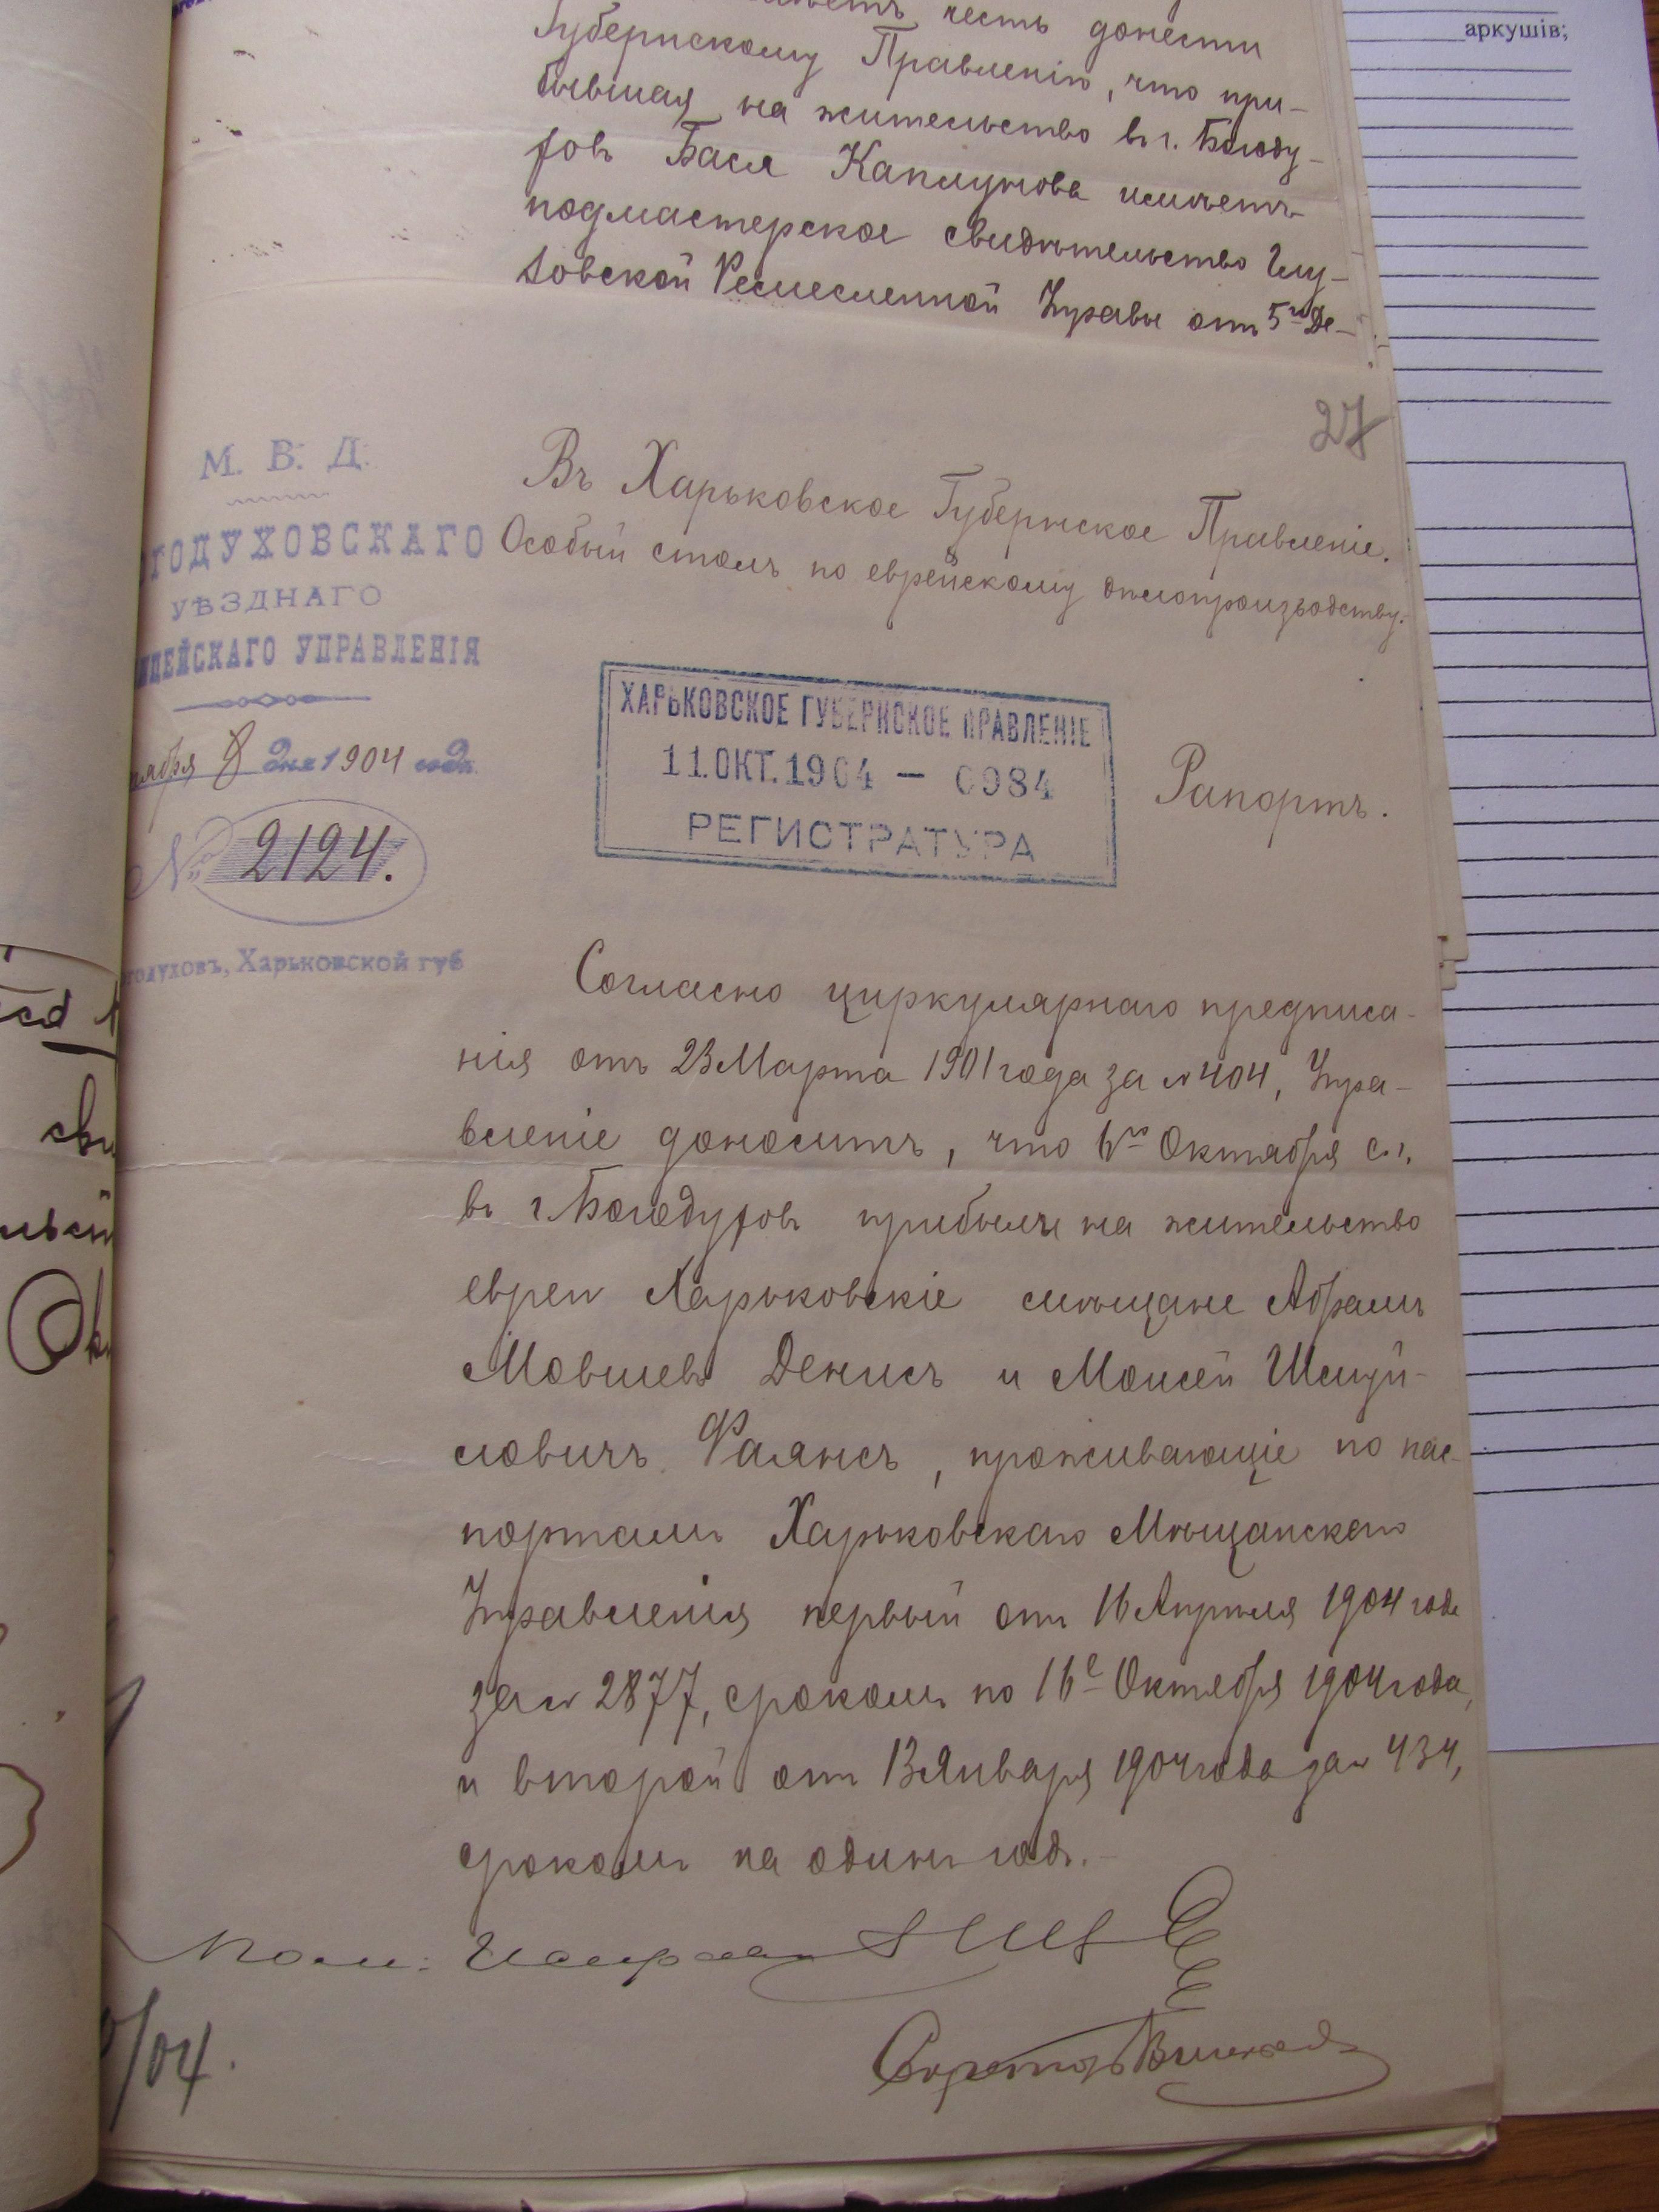 честь донести
Губернскому Правленію, что при-
бывшая на жительство въ г. Богоду-
ховъ Бася Каплунова имѣетъ
подмастерское свидѣтельство Глу-
ховской Ремесленной Управы отъ 5го Де-
аркушів;
27
М. В. Д.
ГОДУХОВСКАГО
УѢЗДНАГО
ЦЕЙСКАГО УПРАВЛЕНІЯ
тября 8 дня 1904 года
№ 2124.
годуховъ, Харьковской губ
Въ Харьковское Губернское Правленіе.
Особый столъ по еврейскому дѣлопроизводству.
ХАРЬКОВСКОЕ ГУБЕРНСКОЕ ПРАВЛЕНІЕ
11.ОКТ.1904 — 0984
РЕГИСТРАТУРА
Рапортъ.
Согласно циркулярнаго предписа-
нія отъ 23 Марта 1901 года за № 404, Упра-
вленіе доноситъ, что 6го Октября с.г.
въ г. Богодуховъ прибыли на жительство
евреи Харьковскіе мѣщане Абрамъ
Мовшевъ Денисъ и Моисей Шмуй-
ловичъ Фаянсъ, проживающіе по пас-
портамъ Харьковскаго Мѣщанскаго
Управленія первый отъ 16 Апрѣля 1904 года
за № 2877, срокомъ по 16е Октября 1904 года,
и второй отъ 13 Января 1904 года за № 434,
срокомъ на одинъ годъ.
Пом. Исправ
Секретарь
/04.